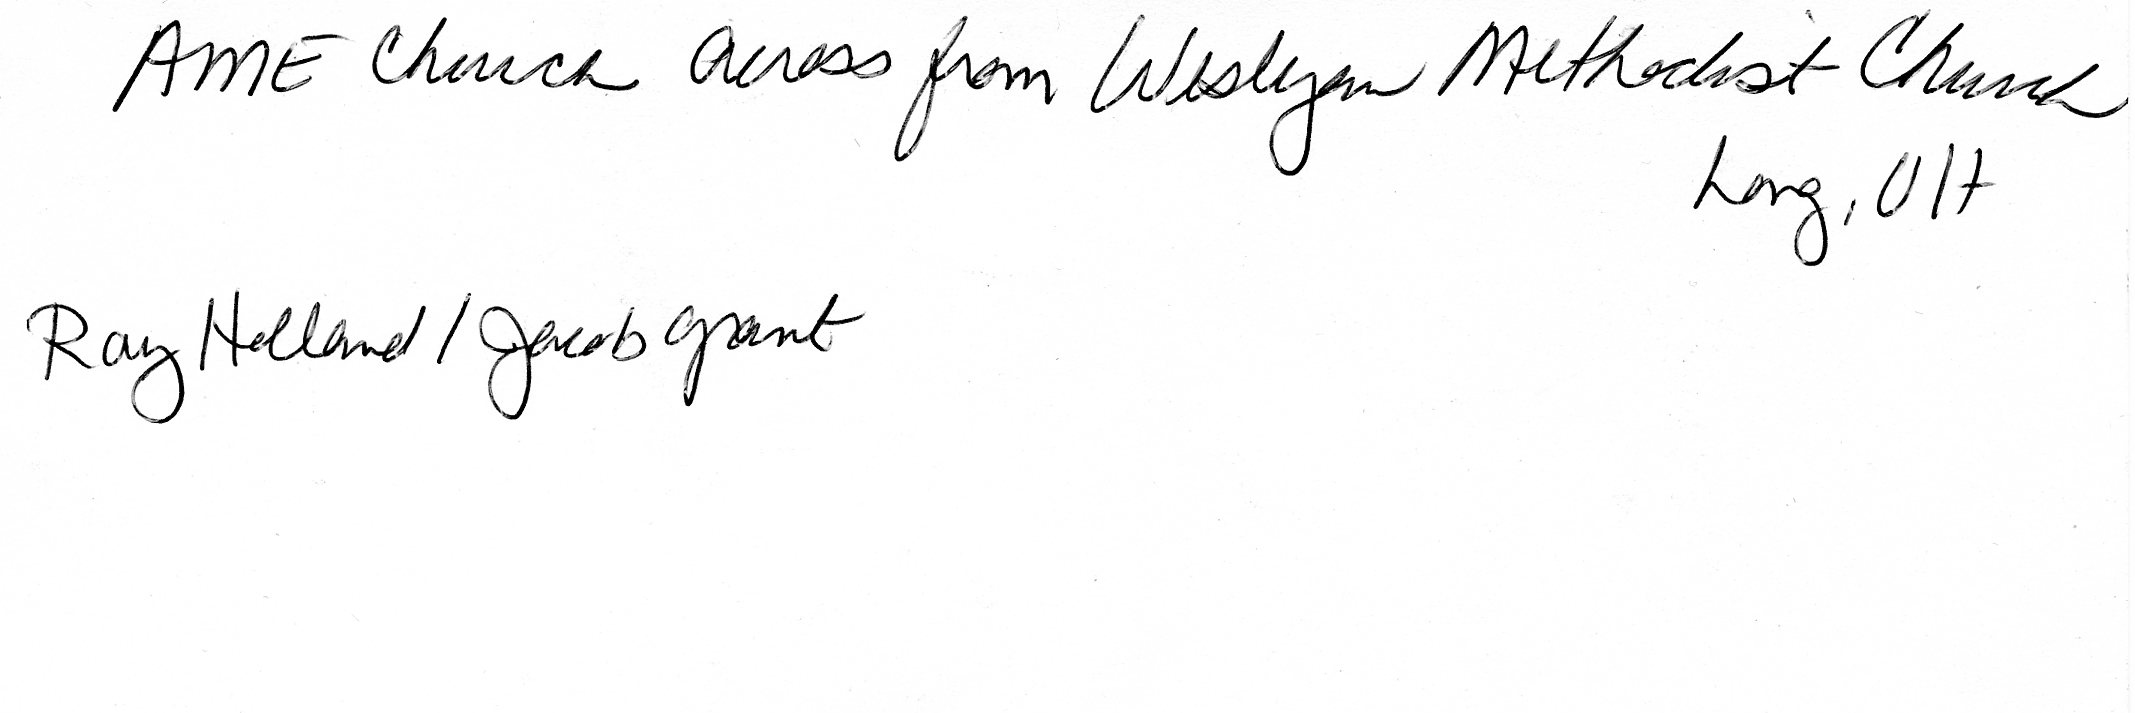 AME Church across from Wesleyan Methodist Church
Long, OH
Ray Holland / Jacob Grant